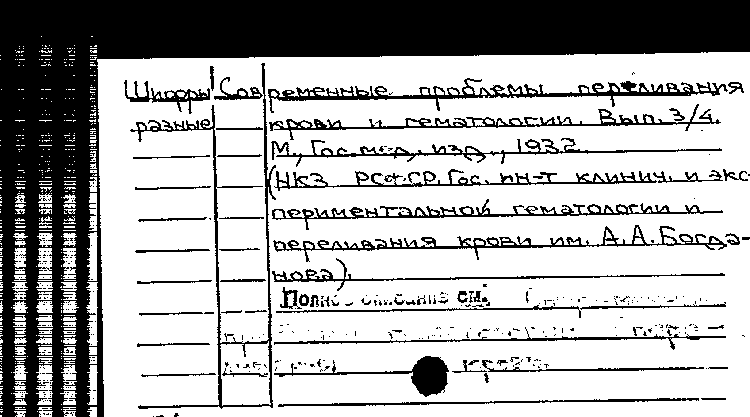 Шифры Современные проблемы переливания
разные крови и гематологии. Вып. 3/4.
М., Гос. мед. изд., 1932.
(НКЗ РСФСР. Гос. ин-т клинич. и экс-
периментальной гематологии и
переливания крови им. А.А. Богда-
нова).
Полное описание см.
пере-